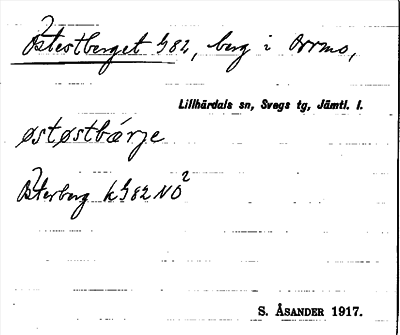 Ostostberget G82, berg i Orrmo,
Lillhärdals sn, Svegs tg, Jämtl. l.
østøstbárje
Osterberg k G82 NO²
S. ÅSANDER 1917.